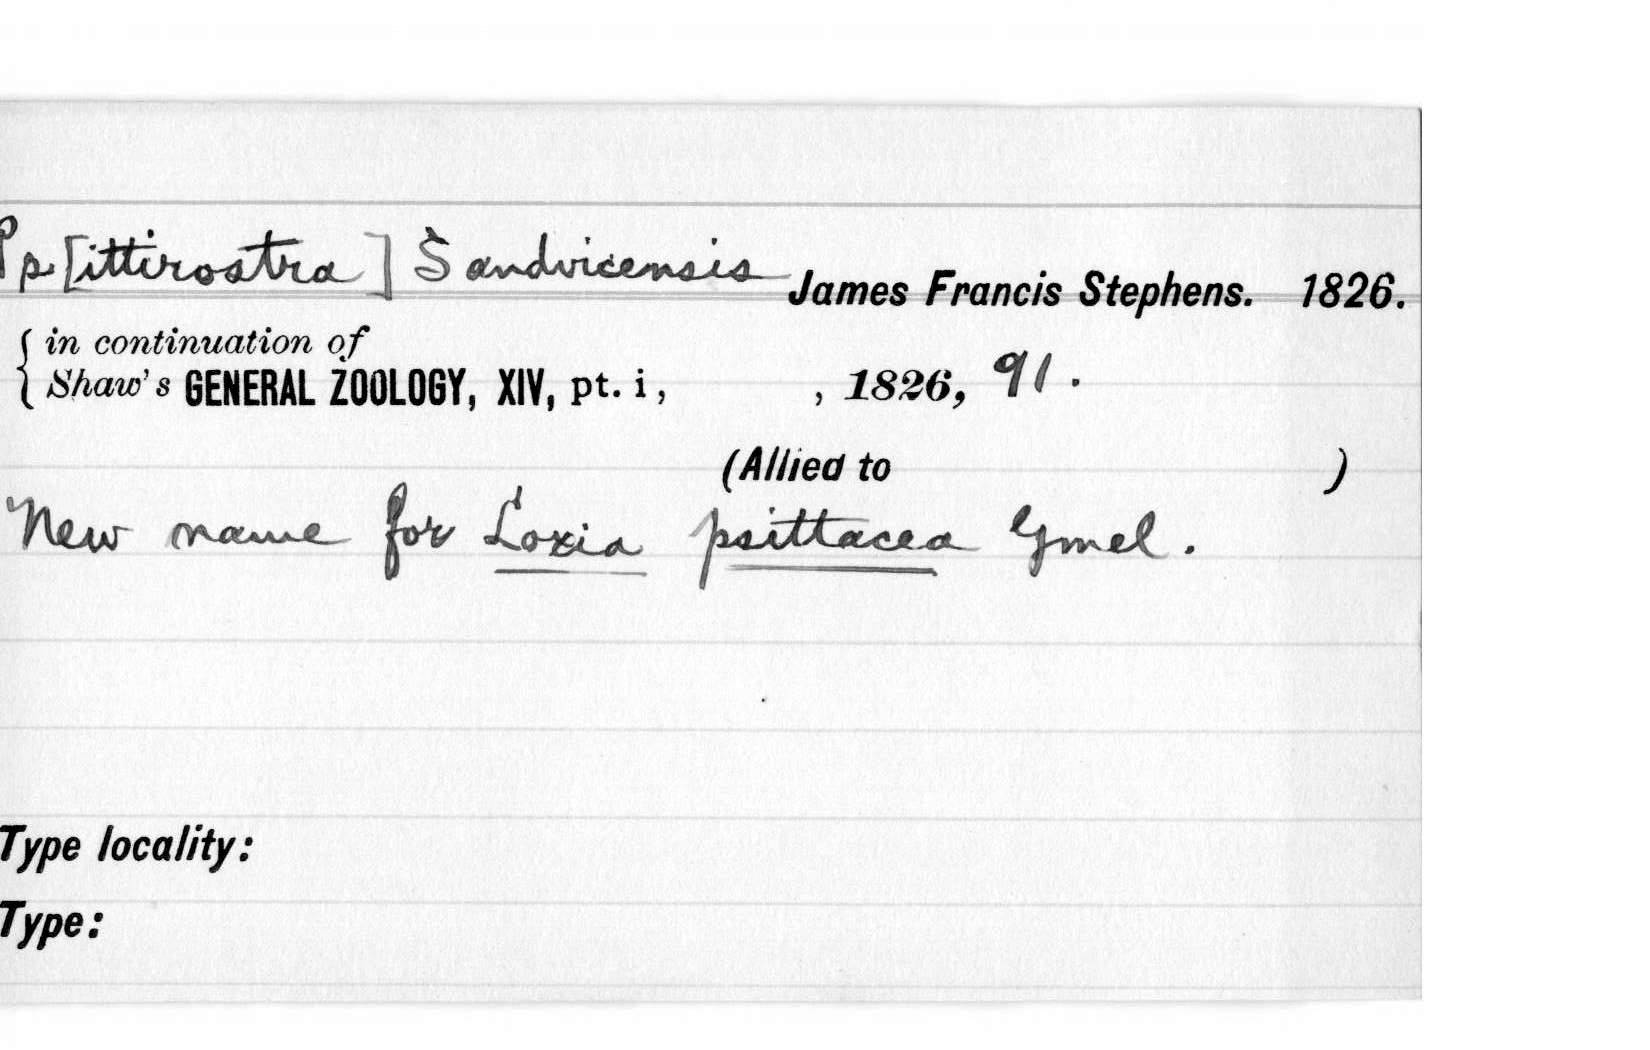 Pp.[ittirostra] Sandvicensis James Francis Stephens. 1826.
in continuation of
Shaw's GENERAL ZOOLOGY, XIV, pt. i, , 1826, 91.
(Allied to )
New name for Loxia psittacea Gmel.
Type locality:
Type: